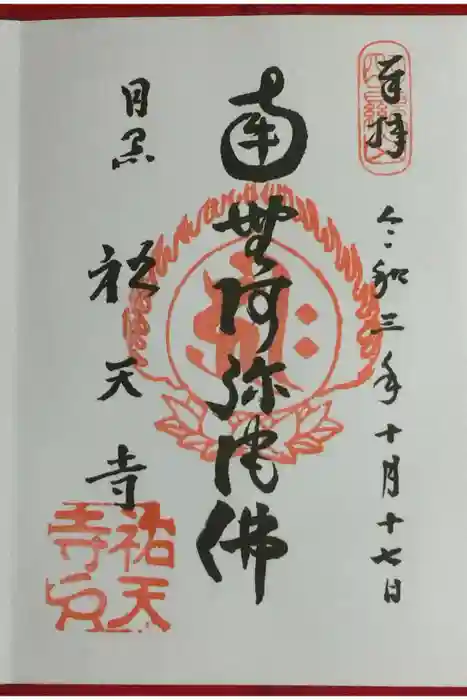 奉拝
令和三年十月十七日
南無阿弥陀佛
目黒 祐天寺
祐天
寺印